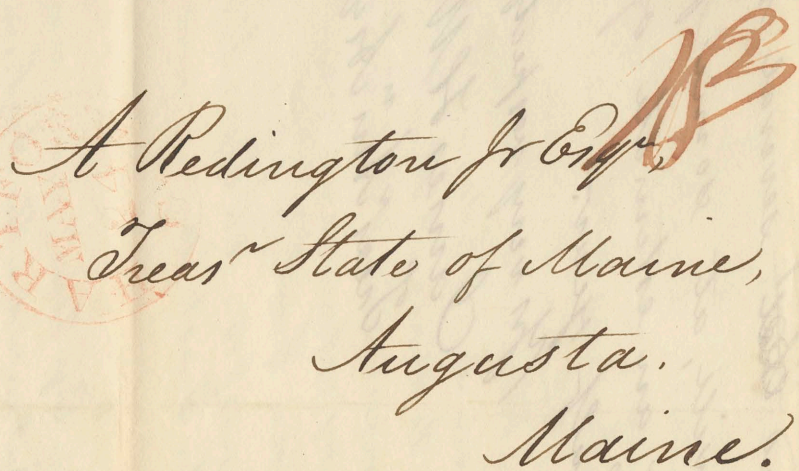 A Redington Jr Esqr,
Treasr State of Maine,
Augusta.
Maine.
MAY